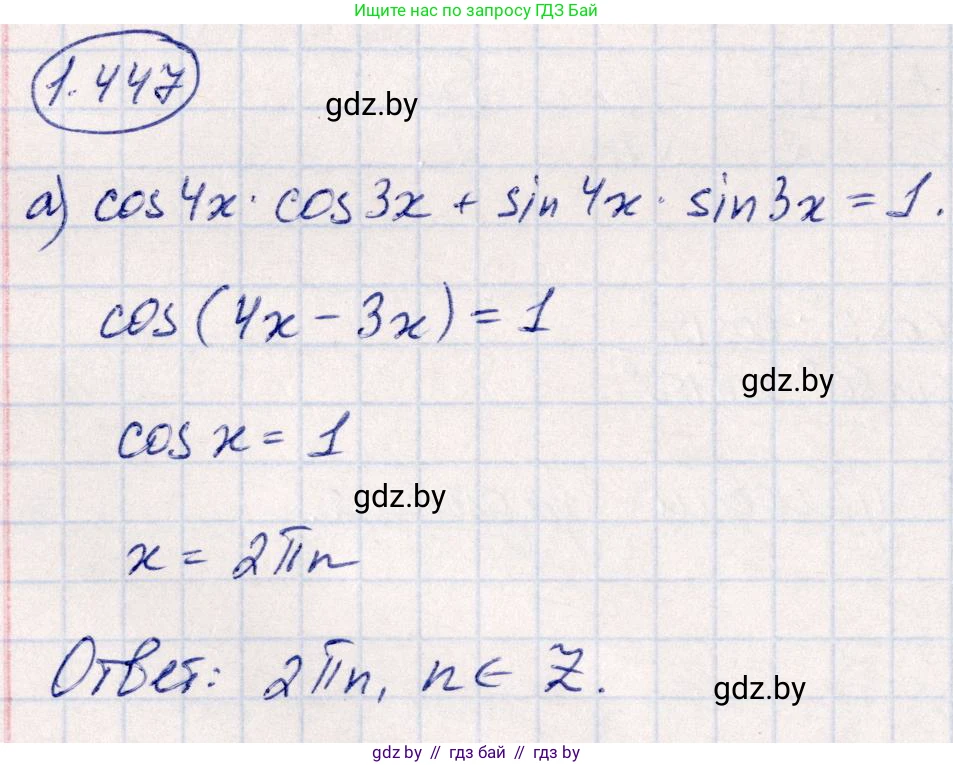 Ищите нас по запросу ГДЗ Бай
1.447
gdz.by
а) cos 4x · cos 3x + sin 4x · sin 3x = 1.
cos (4x - 3x) = 1
gdz.by
cos x = 1
gdz.by
x = 2πn
Ответ: 2πn, n ∈ Z.
gdz.by
gdz by // гдз бай // гдз by